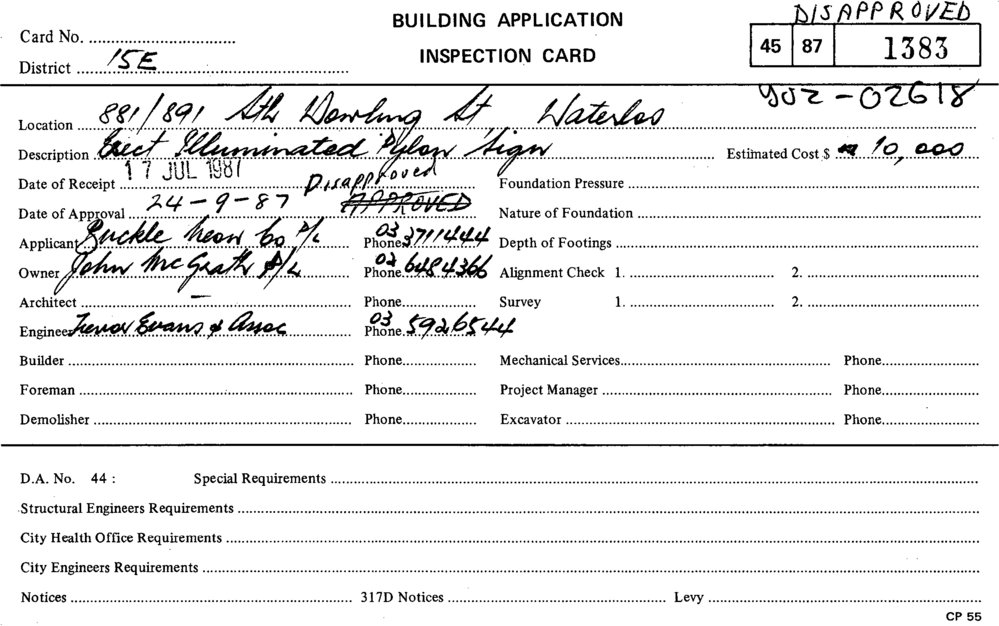 DISAPPROVED
BUILDING APPLICATION
Card No.
45 87 1383
INSPECTION CARD
District 15E
902-02618
Location 881/891 Sth Dowling St Waterloo
Description Erect Illuminated Pylon Sign Estimated Cost $ 10,000
17 JUL 1987
Date of Receipt Disapproved Foundation Pressure
Date of Approval 24-9-87 APPROVED Nature of Foundation
Applicant Buckle Neon Co P/L Phone 03 3711444 Depth of Footings
Owner John McGrath P/L Phone 02 6484366 Alignment Check 1. 2.
Architect – Phone Survey 1. 2.
Engineer Trevor Evans & Assoc Phone 03 5926544
Builder Phone Mechanical Services Phone
Foreman Phone Project Manager Phone
Demolisher Phone Excavator Phone
D.A. No. 44 : Special Requirements
Structural Engineers Requirements
City Health Office Requirements
City Engineers Requirements
Notices 317D Notices Levy
CP 55